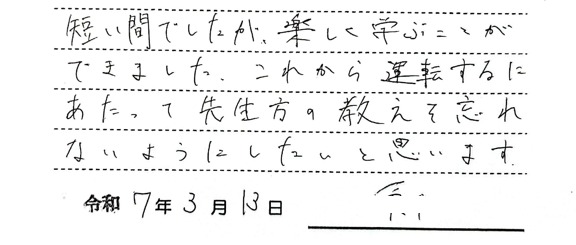 短い間でしたが、楽しく学ぶことが
できました。これから運転するに
あたって先生方の教えを忘れ
ないようにしたいと思います
令和 7年 3月 13日